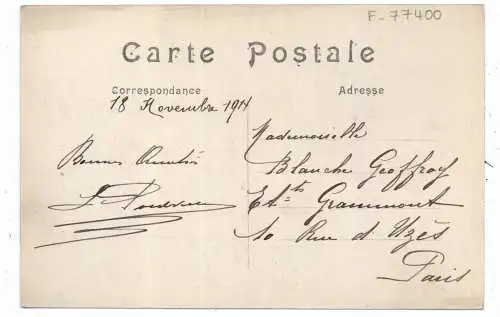 F-77400
Carte Postale
Correspondance
Adresse
18 Novembre 1914
Mademoiselle
Blanche Geoffroy
Ets Grammont
10 Rue d'Uzès
Paris
Bonne Amitié